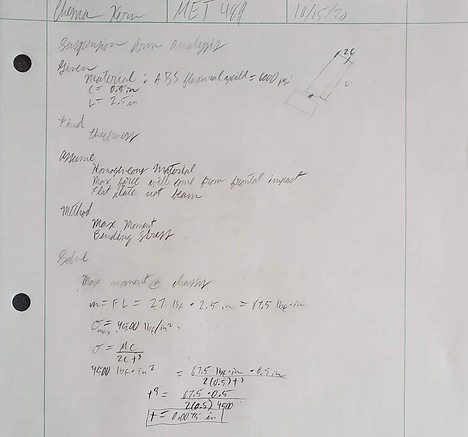 MET 489
10/15/20
Suspension arm analysis
2C
L
Given
Material: ABS flexural yield = 6000 psi
C = 0.5 in
L = 2.5 in
Find
thickness
Assume
Homogeneous material
Max force will come from frontal impact
Flat plate not beam
Method
Max Moment
Bending stress
Solve
Max moment @ chassis
m = FL = 27 lbf • 2.5 in = 67.5 lbf•in
σmax = 4500 lbf/in²
σ = MC / 2Ct³
4500 lbf•in² = 67.5 lbf•in • 0.5 in / 2(0.5)t³
= 67.5 • 0.5 / 2(0.5) 4500
t = 0.0075 in